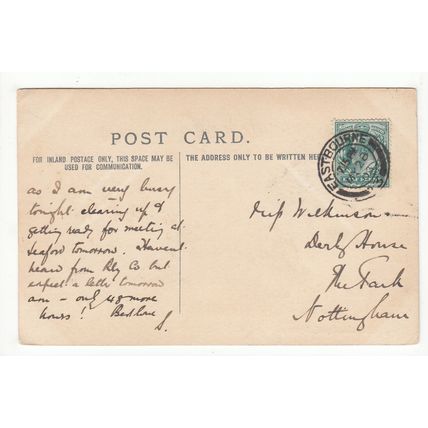 POST CARD.
FOR INLAND POSTAGE ONLY, THIS SPACE MAY BE
USED FOR COMMUNICATION.
THE ADDRESS ONLY TO BE WRITTEN HERE
EASTBOURNE
as I am very busy
tonight clearing up &
getting ready for meeting at
Seaford tomorrow. Haven't
heard from Rly Co but
expect a letter tomorrow
am - only 48 more
hours! Best love
S.
Wilkinson
Derby House
The Park
Nottingham